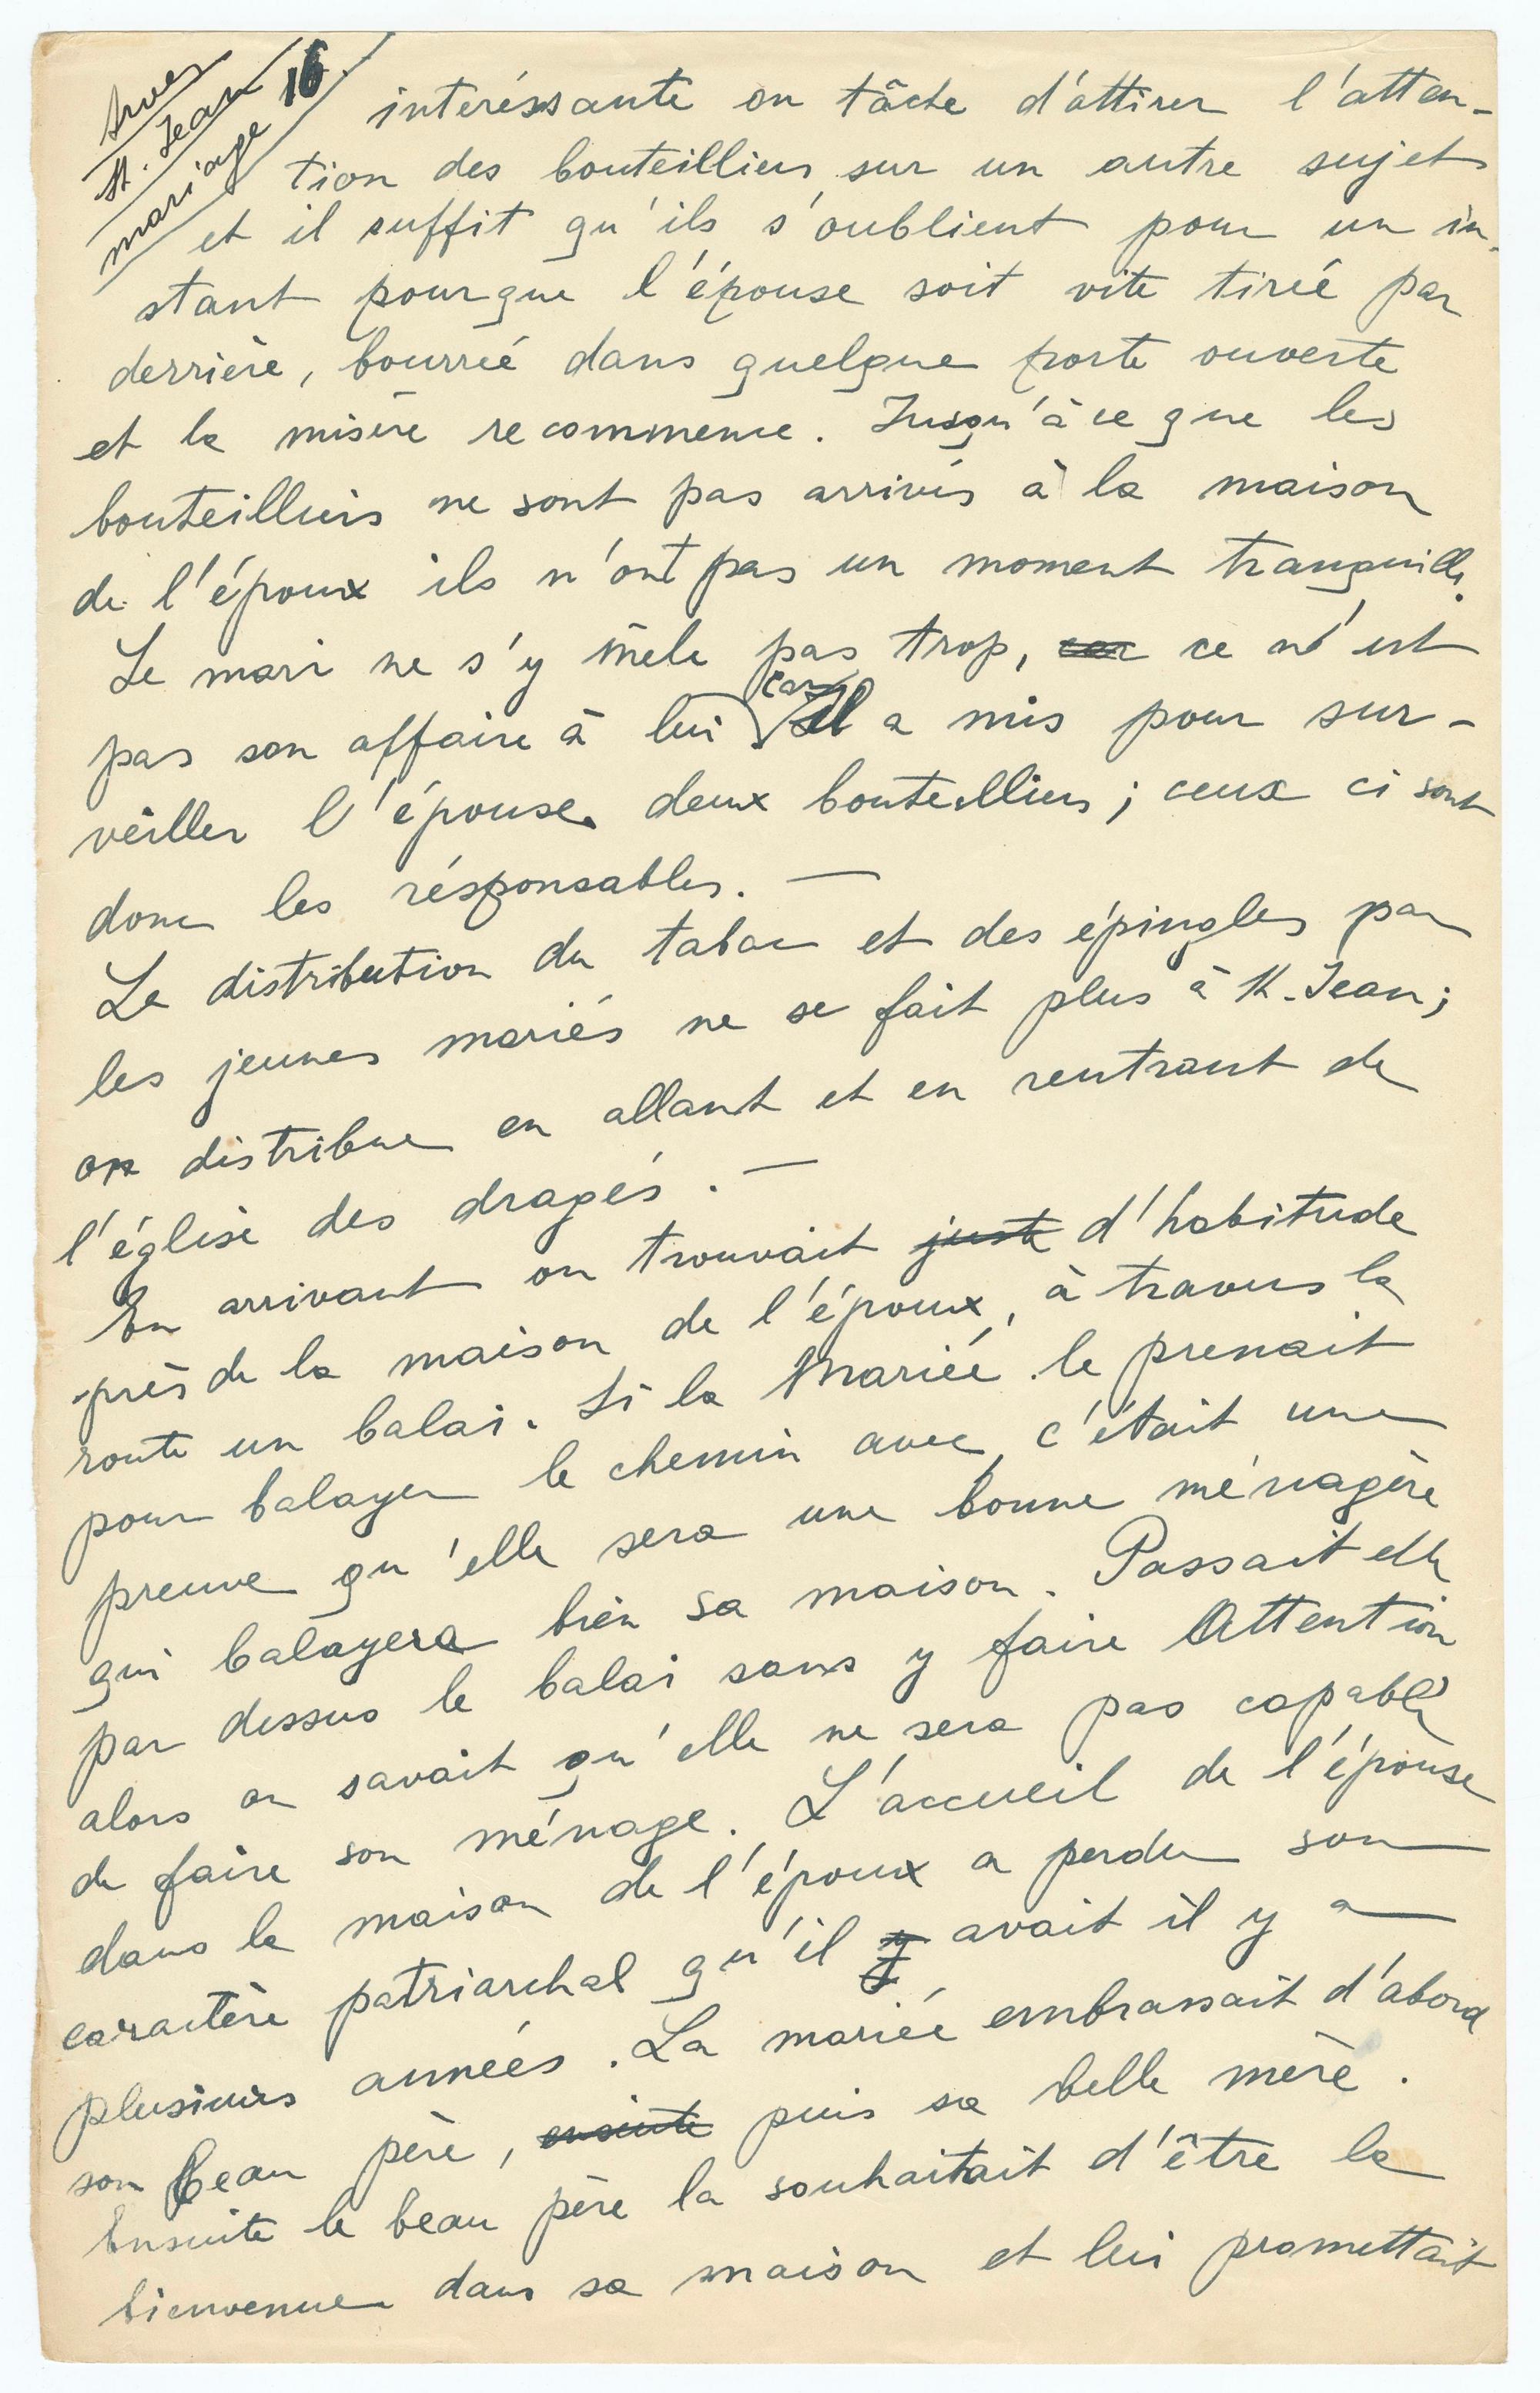 Arves
St. Jean
mariage 16
intéréssante on tâche d'attirer l'atten-
tion des bouteilliers sur un autre sujet
et il suffit qu'ils s'oublient pour un in-
stant pourque l'épouse soit vite tirée par
derrière, bourrée dans quelque porte ouverte
et la misère recommence. Jusqu'à ce que les
bouteilliers ne sont pas arrivés à la maison
de l'époux ils n'ont pas un moment tranquille.
Le mari ne s'y mêle pas trop, car ce n'est
pas son affaire à lui car il a mis pour sur-
veiller l'épouse deux bouteilliers ; ceux ci sont
donc les résponsables. —
La distribution du tabac et des épingles par
les jeunes mariés ne se fait plus à St. Jean ;
on distribue en allant et en rentrant de
l'église des dragés. —
En arrivant on trouvait juste d'habitude
près de la maison de l'époux, à travers la
route un balai. Si la Mariée le prenait
pour balayer le chemin avec, c'était une
preuve qu'elle sera une bonne ménagère
qui balayera bien sa maison. Passait elle
par dessus le balai sans y faire Attention
alors on savait qu'elle ne sera pas capable
de faire son ménage. L'accueil de l'épouse
dans la maison de l'époux a perdu son
caractère patriarchal qu'il y avait il y a
plusieurs années. La mariée embrassait d'abord
son beau père, ensuite puis sa belle mère.
Ensuite le beau père la souhaitait d'être la
bienvenue dans sa maison et lui promettait